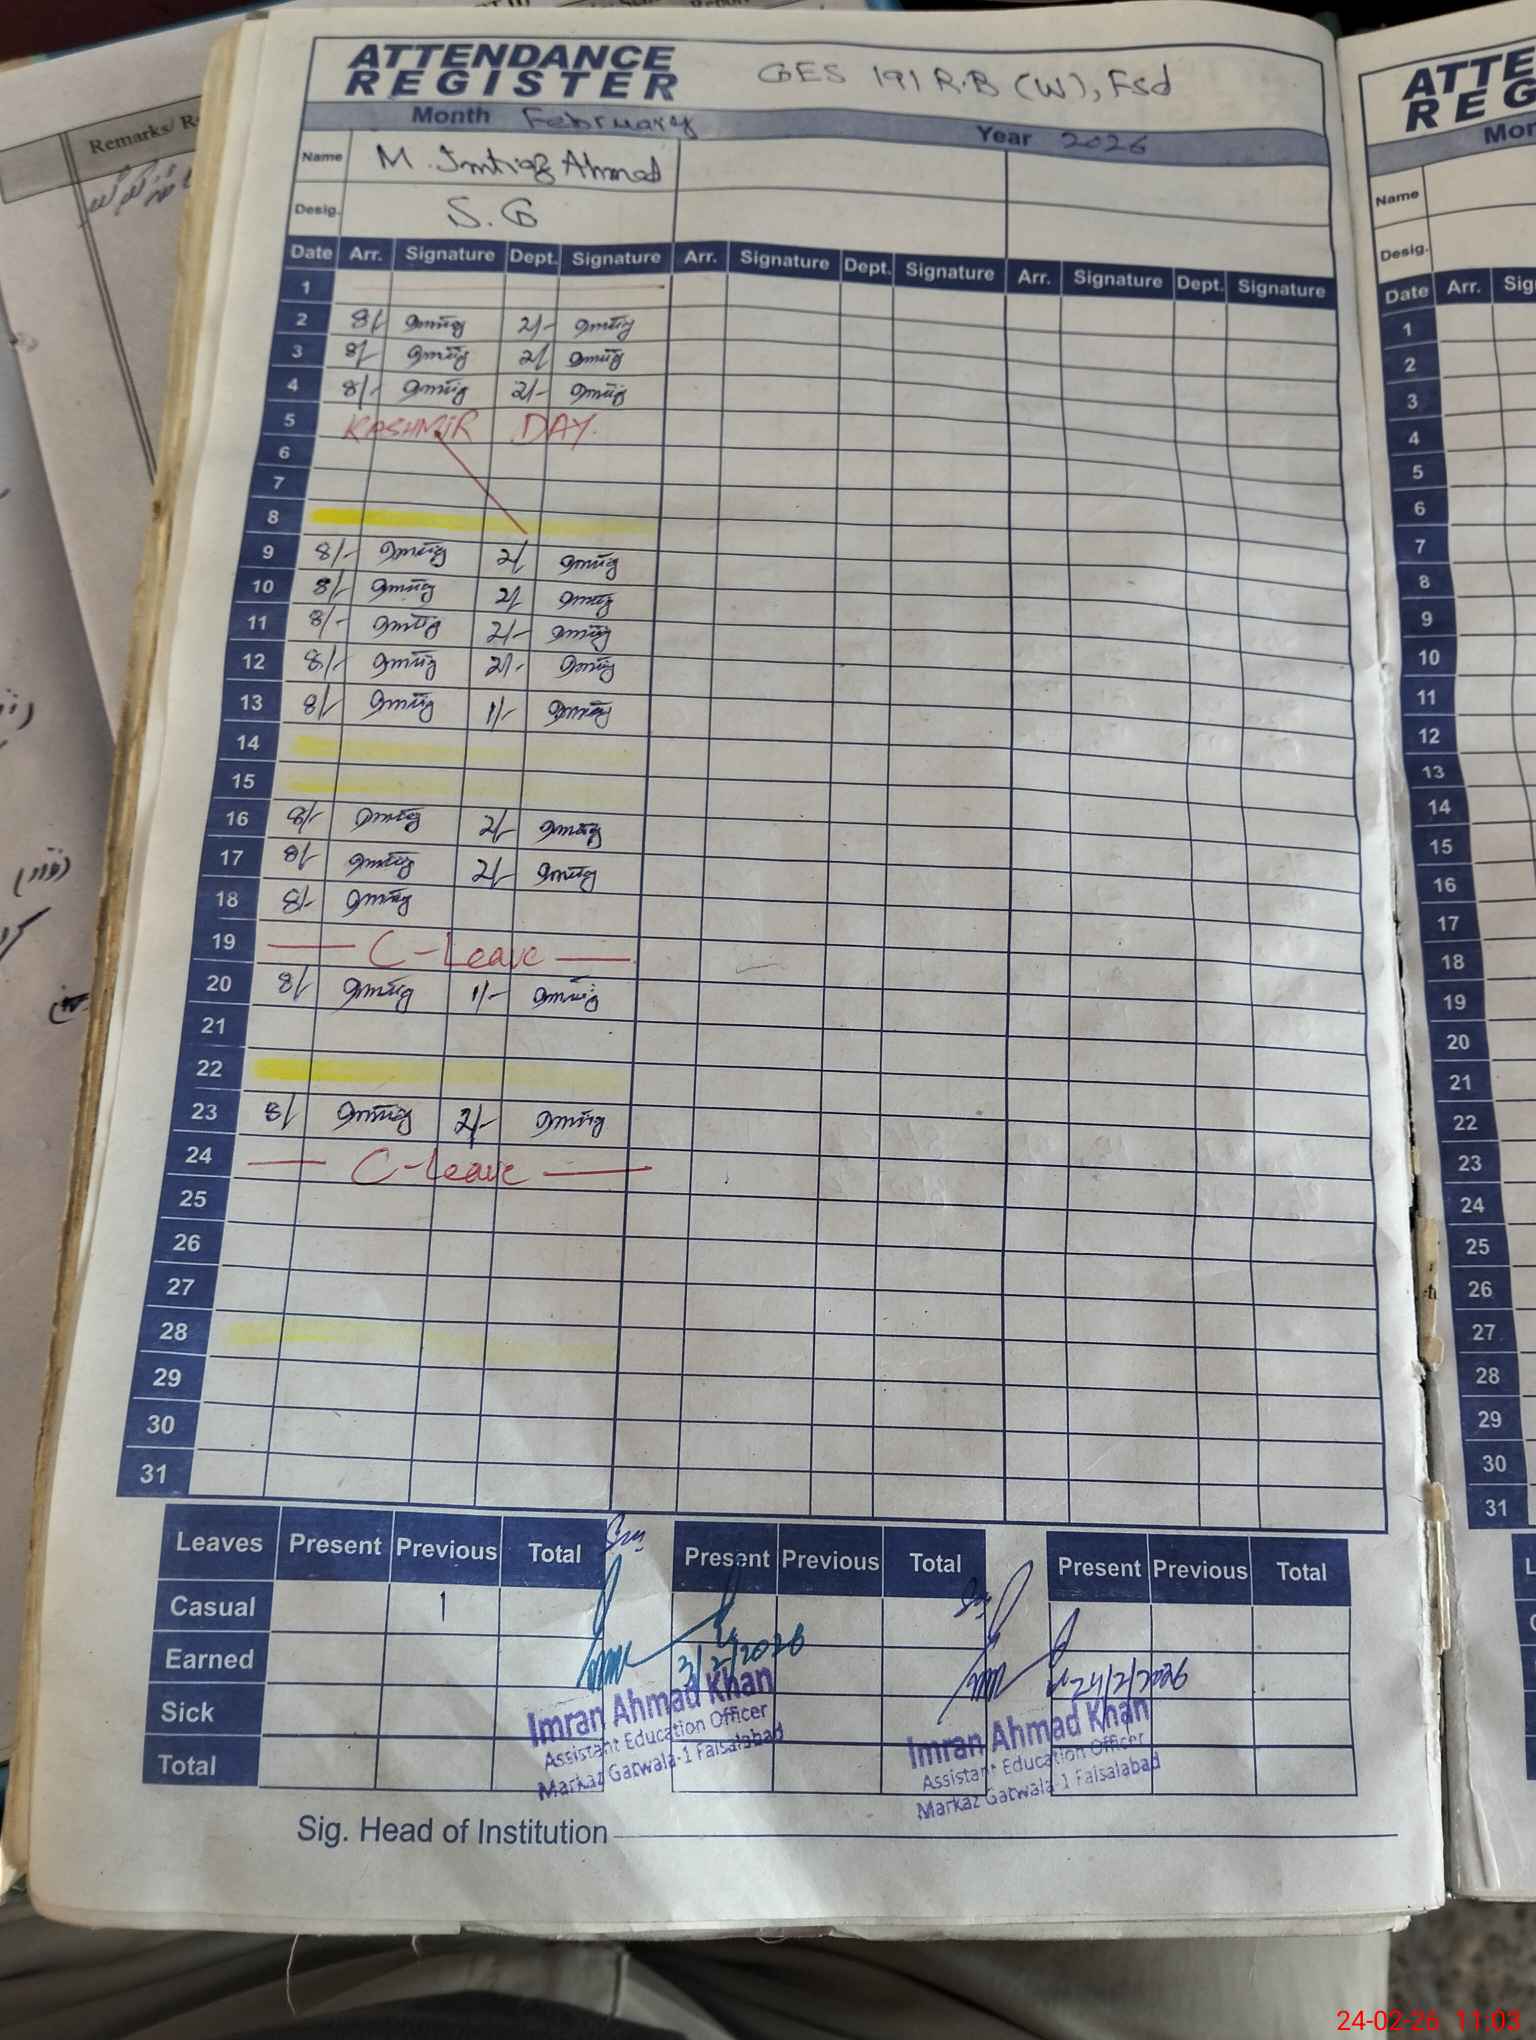 ATTENDANCE REGISTER
GES 191 R.B (W), Fsd
Month February Year 2026
Name M. Imtiaz Ahmad
Desig. S.G
Date Arr. Signature Dept. Signature Arr. Signature Dept. Signature Arr. Signature Dept. Signature
1
2 8/- 2/-
3 8/- 2/
4 8/- 2/-
5 KASHMIR DAY.
6
7
8
9 8/- 2/
10 8/ 2/
11 8/- 2/-
12 8/- 2/-
13 8/- 1/-
14
15
16 8/- 2/-
17 8/ 2/-
18 8/-
19 C-Leave
20 8/ 1/-
21
22
23 8/ 2/-
24 C-Leave
25
26
27
28
29
30
31
Leaves Present Previous Total Present Previous Total Present Previous Total
Casual 1
Earned
Sick
Total
3/2/2026
Imran Ahmad Khan
Assistant Education Officer
Markaz Gatwala-1 Faisalabad
24/2/2026
Imran Ahmad Khan
Assistant Education Officer
Markaz Gatwala-1 Faisalabad
Sig. Head of Institution
Remarks/
ATTE
REG
Mon
Name
Desig.
Date Arr. Sig
1
2
3
4
5
6
7
8
9
10
11
12
13
14
15
16
17
18
19
20
21
22
23
24
25
26
27
28
29
30
31
24-02-26 11:03